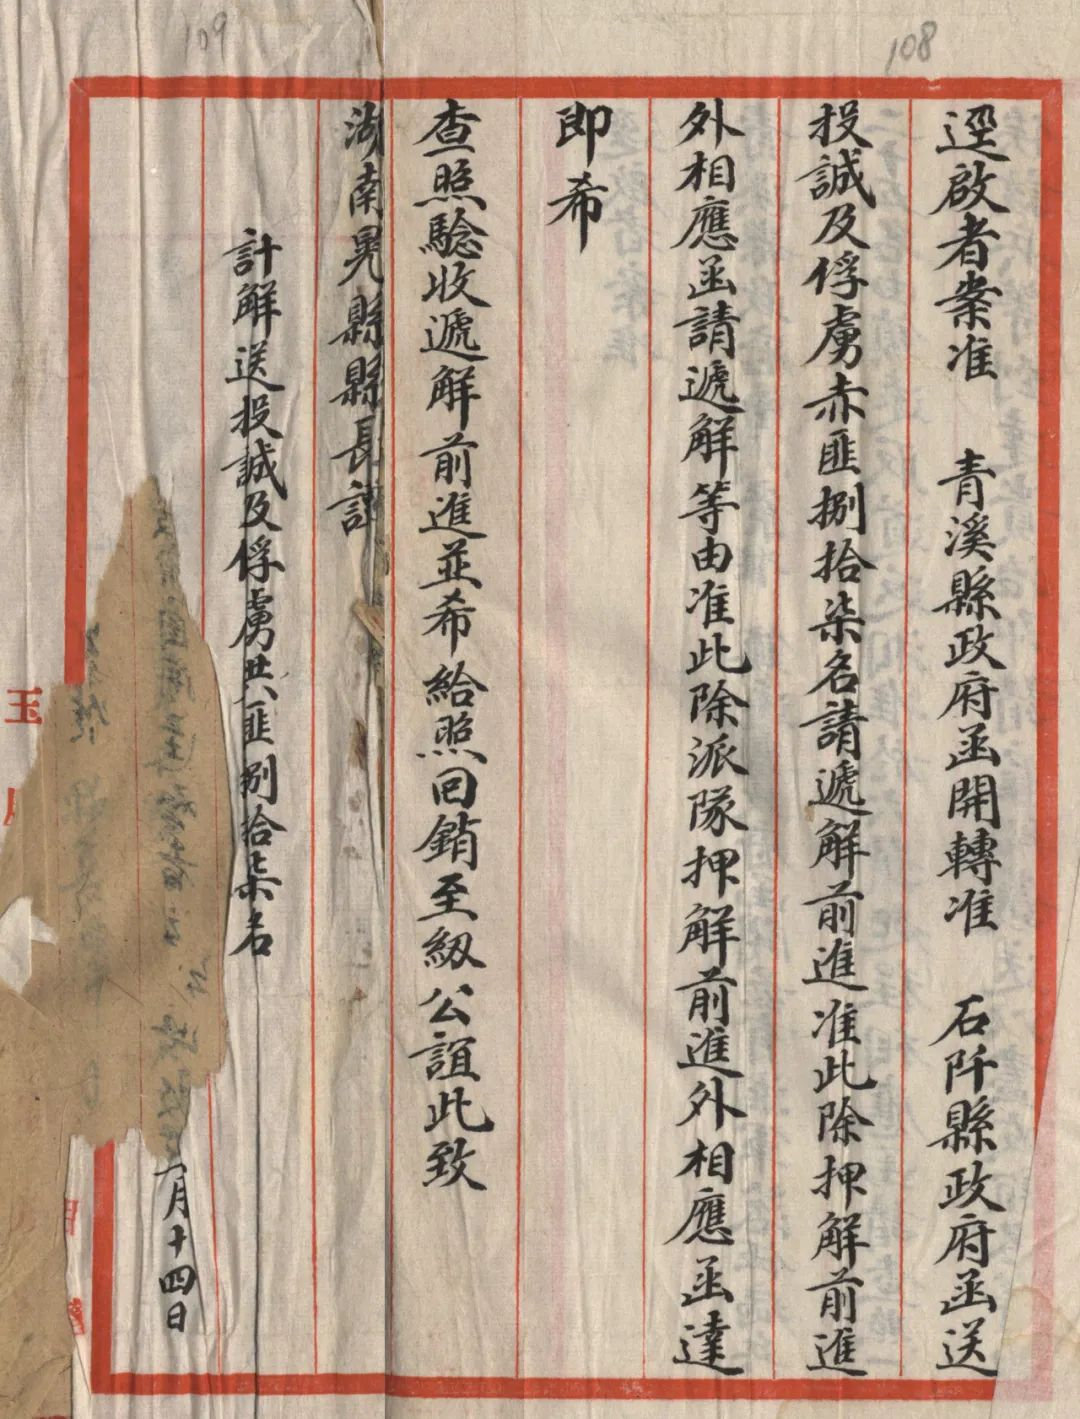 108
109
逕啟者案准 青溪縣政府函開轉准 石阡縣政府函送
投誠及俘虜赤匪捌拾柒名請遞解前進准此除押解前進
外相應函請遞解等由准此除派隊押解前進外相應函達
即希
查照驗收遞解前進並希給照回銷至紉公誼此致
湖南晃縣縣長譚
計解送投誠及俘虜共匪捌拾柒名
月十四日
玉